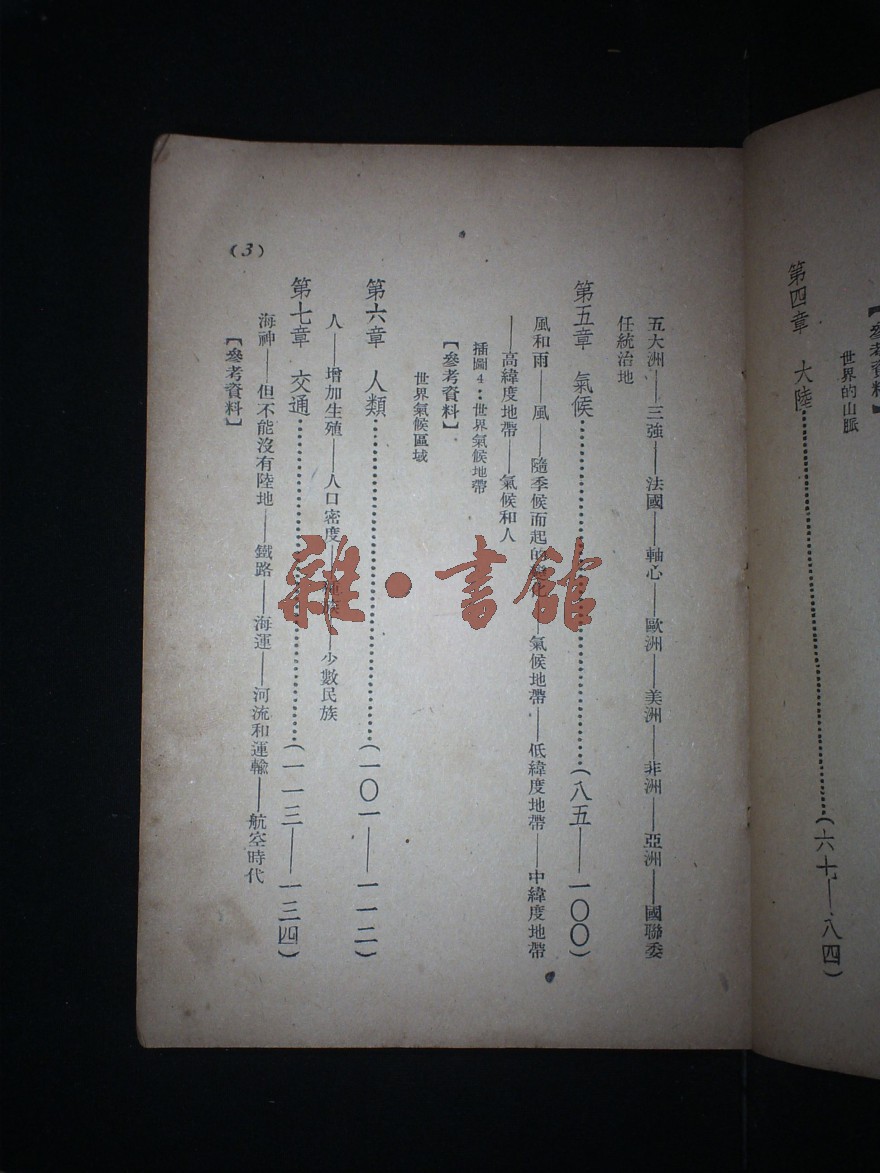 【參考資料】
世界的山脈
第四章　大陸……………………………(六七——八四)
五大洲——三強——法國——軸心——歐洲——美洲——非洲——亞洲——國聯委
任統治地
第五章　氣候……………………………(八五——一〇〇)
風和雨——風——隨季候而起的變化——氣候地帶——低緯度地帶——中緯度地帶
——高緯度地帶——氣候和人
插圖4：世界氣候地帶
【參考資料】
世界氣候區域
第六章　人類……………………………(一〇一——一一二)
人——增加生殖——人口密度——種族——少數民族
第七章　交通……………………………(一一三——一三四)
海神——但不能沒有陸地——鐵路——海運——河流和運輸——航空時代
【參考資料】
(3)
雜·書館